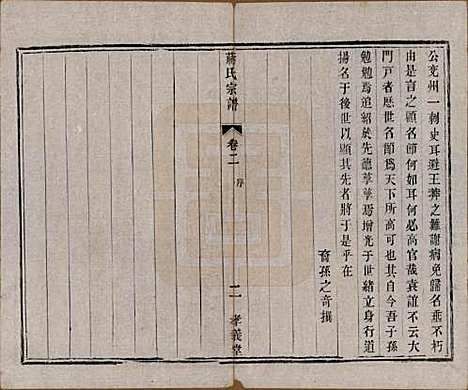 公兗州一刺史耳避王莽之難謝病免歸名垂不朽
由是言之顧名節何如耳何必高官哉袁誼不云大
門戶者歷世名節爲天下所高可也其自今吾子孫
勉勉焉追紹於先德孳孳焉增光于世緒立身行道
揚名于後世以顯其先者將于是乎在
裔孫之奇撰
蔣氏宗譜
卷二
序
二
孝義堂